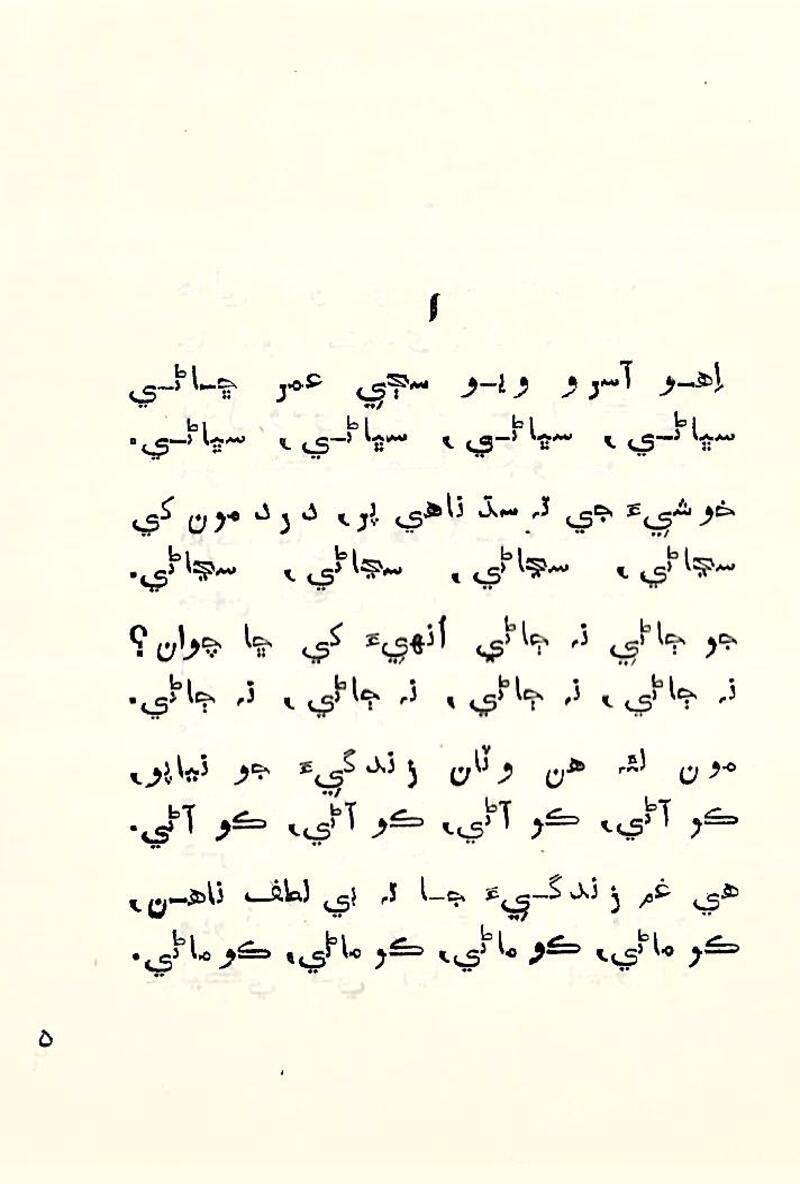 ۱
اِهـو آسرو ويـو سڄي عمر ڇـاڻـي
سڀاڻـي، سڀاڻـي، سڀاڻـي، سڀاڻـي.
خوشيءَ جي تہ سڌ ناهي پر، درد مون کي
سڃاڻي، سڃاڻي، سڃاڻي، سڃاڻي.
جو ڄاڻي نہ ڄاڻي اُنهيءَ کي ڇا چوان؟
نہ ڄاڻي، نہ ڄاڻي، نہ ڄاڻي، نہ ڄاڻي.
مون لئہ هن وٽان زندگيءَ جو نياپو،
ڪو آڻي، ڪو آڻي، ڪو آڻي، ڪو آڻي.
هي غم زندگـيءَ جـا تہ بي لطف ناهـن،
ڪو ماڻي، ڪو ماڻي، ڪو ماڻي، ڪو ماڻي.
۵